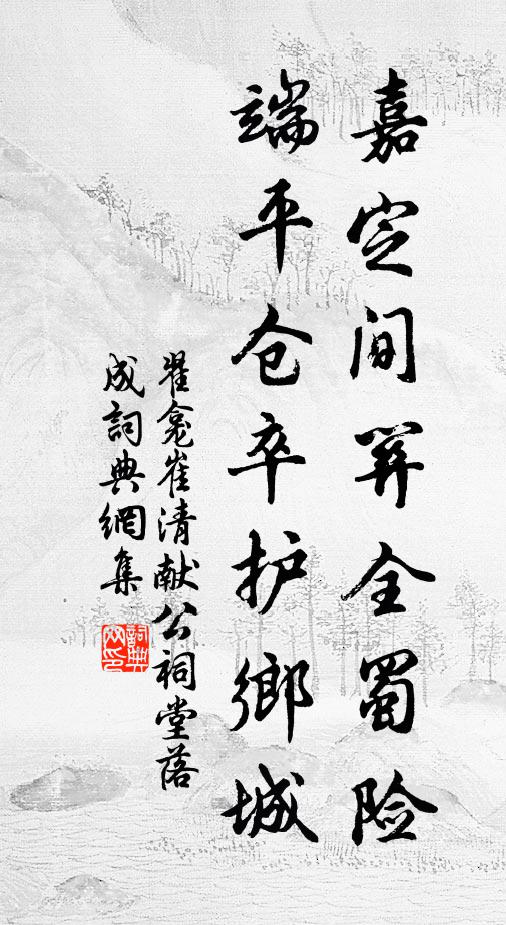 嘉定间关全蜀险
端平仓卒护鄉城
翟龛崔清献公祠堂落
成詞典網集
詞典網印